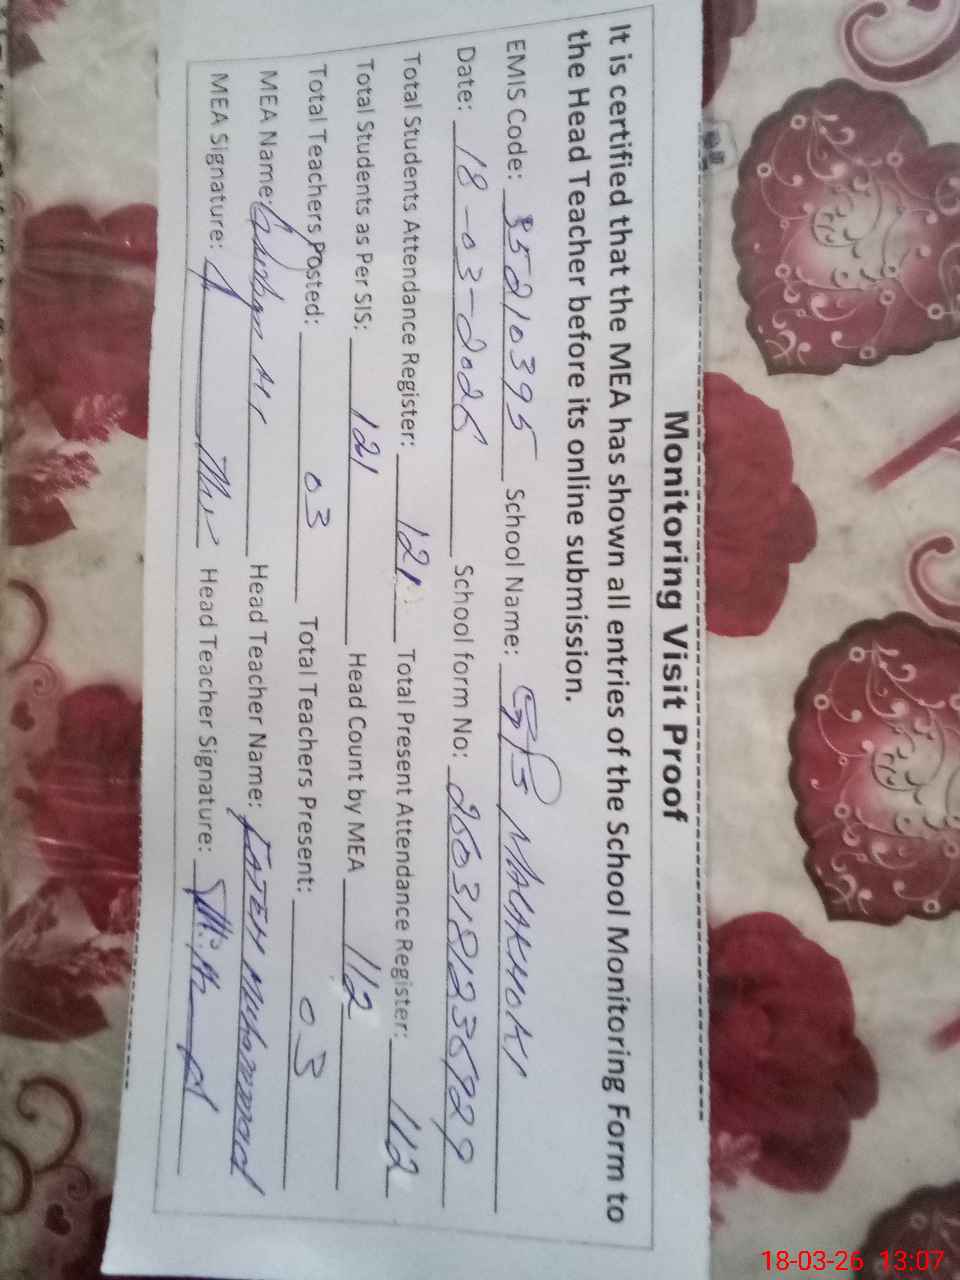 Monitoring Visit Proof
It is certified that the MEA has shown all entries of the School Monitoring Form to
the Head Teacher before its online submission.
EMIS Code: 35210395 School Name: GPS MACHKHOKI
Date: 18-03-2026 School form No:
Total Students Attendance Register: 121 Total Present Attendance Register: 112
Total Students as Per SIS: 121 Head Count by MEA 112
Total Teachers Posted: 03 Total Teachers Present: 03
MEA Name: Head Teacher Name: FATEH MUHAMMAD
MEA Signature: Head Teacher Signature:
18-03-26 13:07